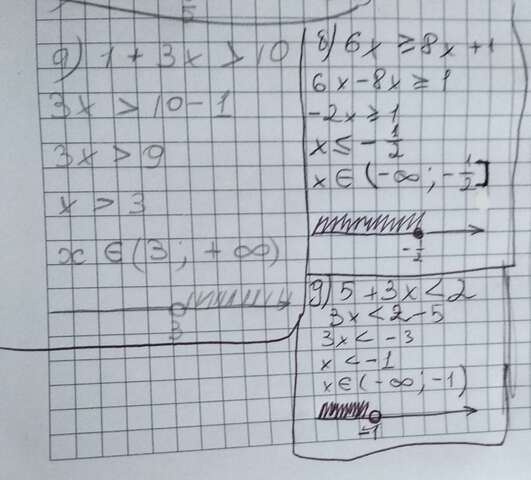 g) 1 + 3x > 10
3x > 10 - 1
3x > 9
x > 3
x ∈ (3 ; + ∞)
3
8) 6x ≥ 8x + 1
6x - 8x ≥ 1
-2x ≥ 1
x ≤ - 1/2
x ∈ (-∞ ; - 1/2]
- 1/2
9) 5 + 3x < 2
3x < 2 - 5
3x < -3
x < -1
x ∈ (-∞ ; -1)
-1